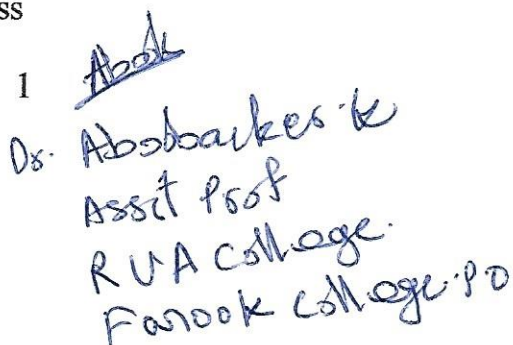 ss
1
Dr. Aboobacker. K
Assit Prof
RUA College.
Farook College. PO